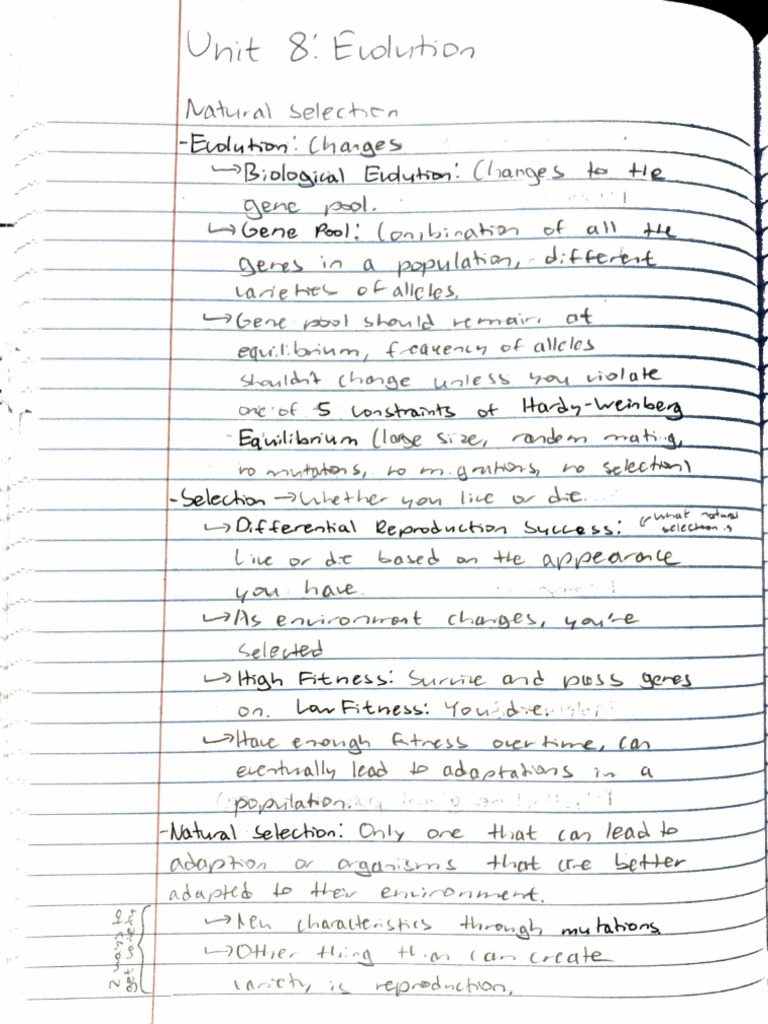 Unit 8: Evolution
Natural Selection
-Evolution: Changes
↳Biological Evolution: Changes to the
gene pool.
↳Gene Pool: Combination of all the
genes in a population, different
varieties of alleles.
↳Gene pool should remain at
equilibrium, frequency of alleles
shouldn't change unless you violate
one of 5 constraints of Hardy-Weinberg
Equilibrium (large size, random mating,
no mutations, no migrations, no selection)
-Selection →Whether you live or die.
↳Differential Reproduction Success: ↙what natural
selection is
Live or die based on the appearance
you have.
↳As environment changes, you're
selected
↳High Fitness: Survive and pass genes
on. Low Fitness: You die.
↳Have enough fitness over time, can
eventually lead to adaptations in a
population.
-Natural Selection: Only one that can lead to
adaption or organisms that are better
adapted to their environment.
2 ways to
get variety
↳New characteristics through mutations
↳Other thing than can create
variety is reproduction.